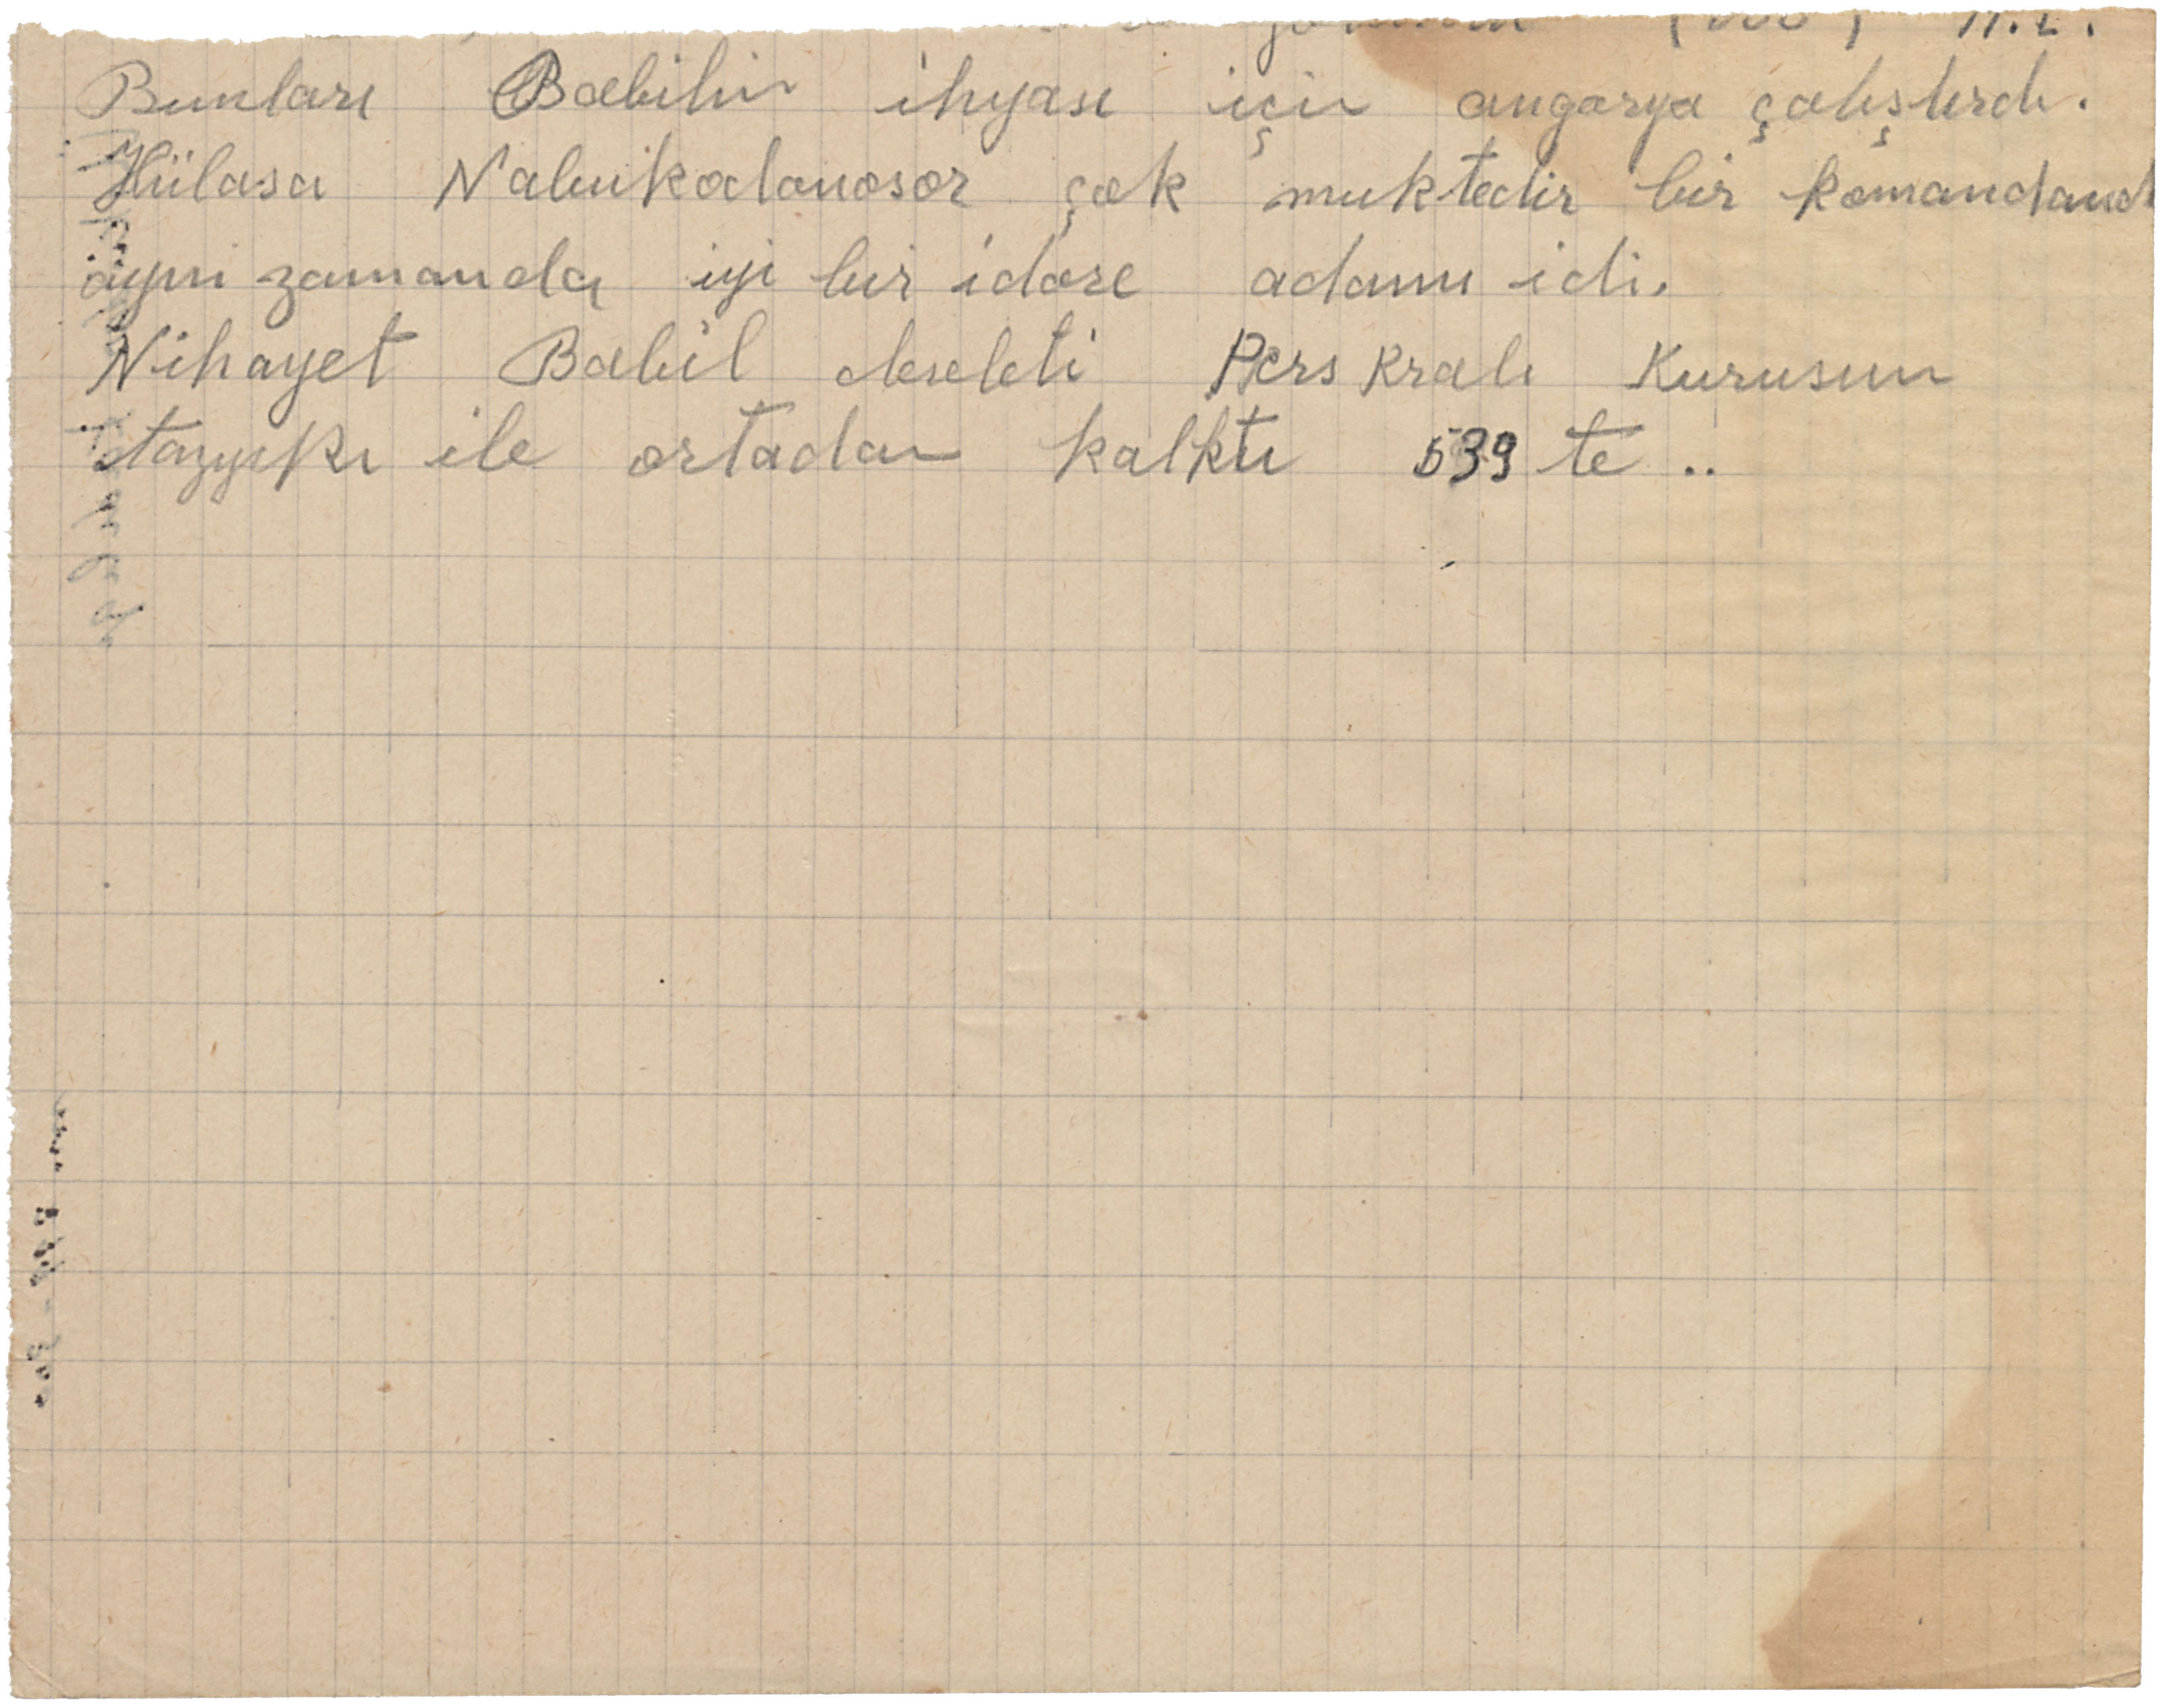 Bunları Babilin ihyası için angarya çalıştırdı.
Hülasa Nabukodonosor çok muktedir bir komandand
ayni zamanda iyi bir idare adamı idi.
Nihayet Babil devleti Pers Kralı Kurusun
tazyıkı ile ortadan kalktı 539 te ..